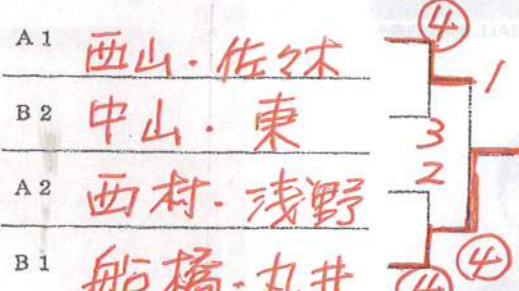 A1 西山・佐々木 ④
1
B2 中山・東 3
A2 西村・浅野 2
B1 船橋・丸井 ④
④